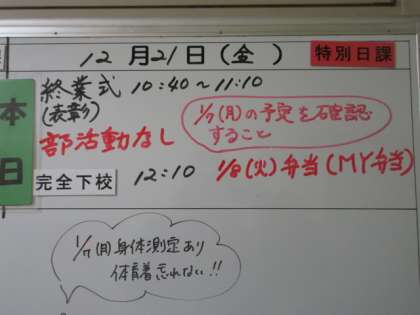 12月21日(金)
特別日課
本日
終業式 10:40~11:10
(表彰)
1/7(月)の予定を確認
すること
部活動なし
完全下校 12:10
1/8(火)弁当(MY弁当)
1/7(月)身体測定あり
体育着忘れない!!